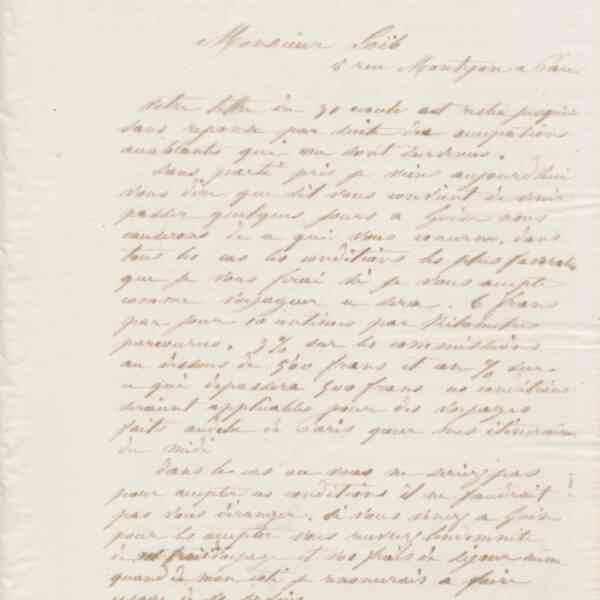 Monsieur Loïb
rue Montyon a Paris
Votre lettre du 30 est restée jusqu'ici
sans reponse par suite des occupations
accablantes qui me sont survenues.
Sans parti pris je viens aujourd'hui
vous dire que s'il vous convient de venir
passer quelques jours a Guise nous
causerons de ce qui vous concerne. dans
tous les cas les conditions les plus favorables
que je vous ferai si je vous accepte
comme voyageur ce sera. 6 francs
par jour 10 centimes par Kilometres
parcourus. 3% sur les commissions
au dessous de 500 francs et un % sur
ce qui depassera 500 francs ces conditions
seraient applicables pour des voyages
faits de Paris pour mes itineraires
du midi
Dans le cas ou vous ne seriez pas
pour accepter ces conditions il ne faudrait
pas vous déranger. Si vous venez a Guise
pour les accepter vous aurez l'indemnité
de voyage et vos frais de séjour
quand de mon coté je renoncerais a faire
usage de